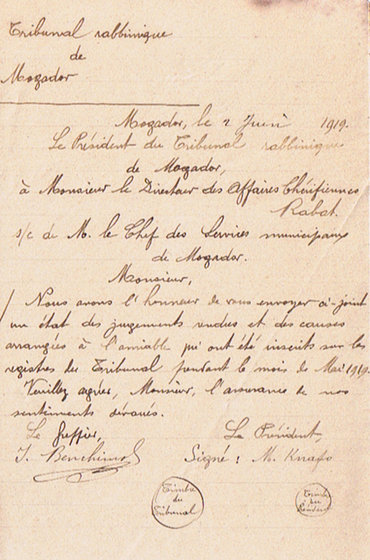 Tribunal rabbinique
de
Mogador
Mogador, le 2 Juin 1919.
Le Président du Tribunal rabbinique
de Mogador,
à Monsieur le Directeur des Affaires Chérifiennes
Rabat.
s/c de M. le Chef des Services municipaux
de Mogador.
Monsieur,
Nous avons l'honneur de vous envoyer ci-joint
un état des jugements rendus et des causes
arrangées à l'amiable qui ont été inscrits sur les
registres du Tribunal pendant le mois de Mai 1919.
Veuillez agréer, Monsieur, l'assurance de nos
sentiments dévoués.
Le Greffier, Le Président,
I. Benchimol Signé : M. Knafo
Timbre
du
Tribunal
Timbre
du
Président